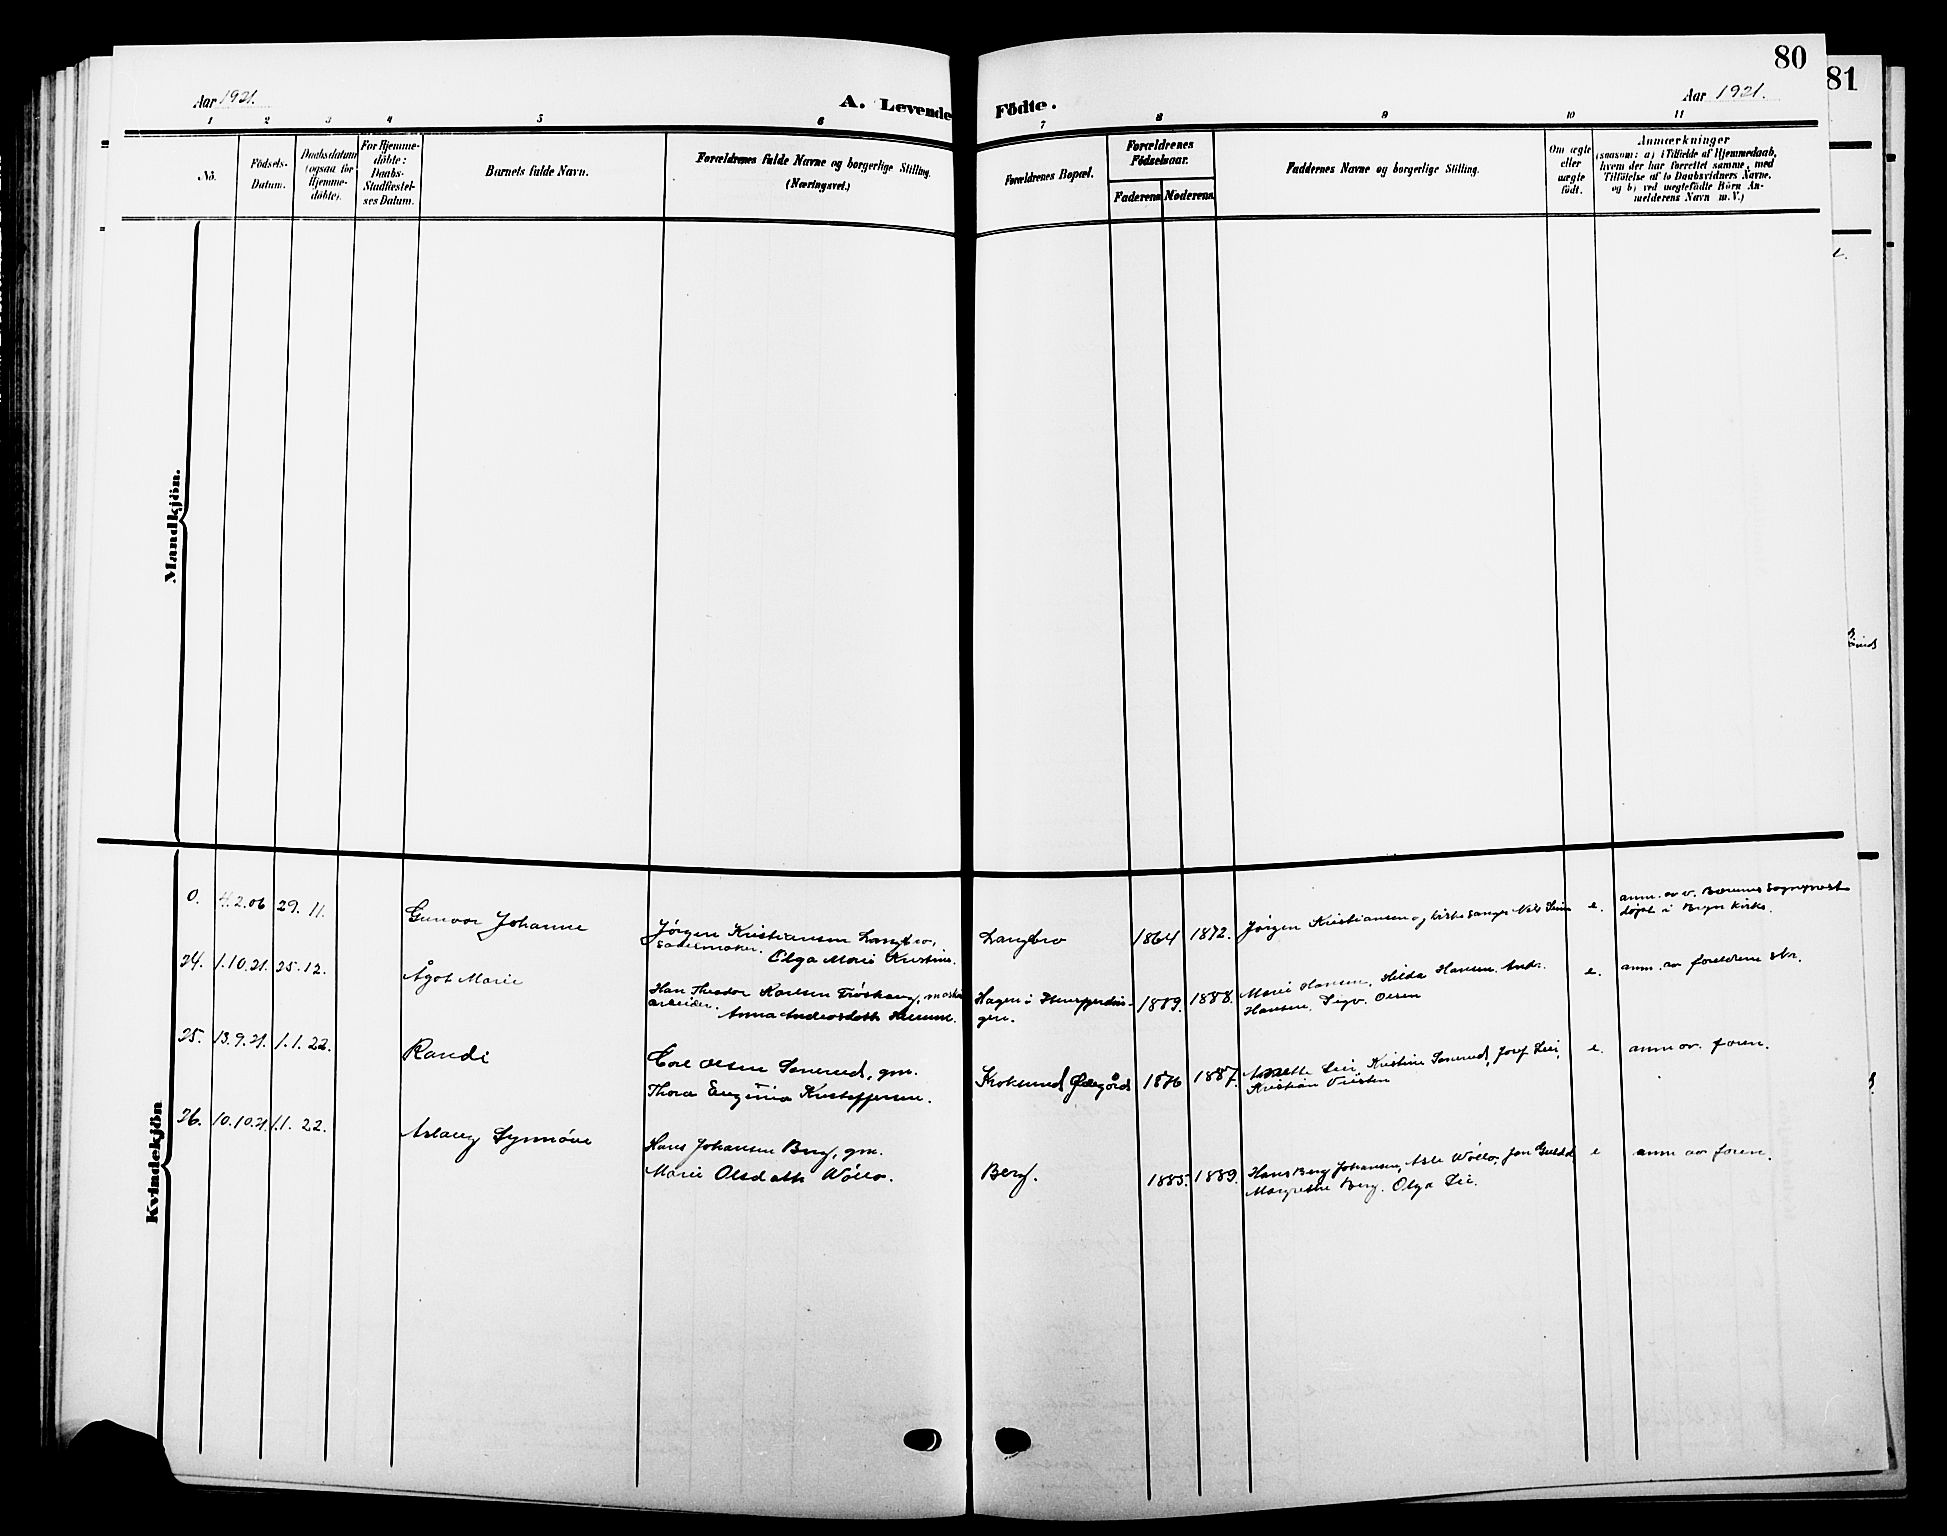 80
81
Aar 1921.
A. Levende Födte.
Aar 1921.
1 2 3 4 5 6 7 8 9 10 11
No.
Födsels-Datum.
Daabsdatum (ogsaa for Hjemme-döbte).
For Hjemme-döbte: Daabs-Stadfæstel-ses Datum.
Barnets fulde Navn.
Forældrenes fulde Navne og borgerlige Stilling. (Næringsvei.)
Forældrenes Bopæl.
Forældrenes Födselsaar.
Faderens Moderens
Faddernes Navne og borgerlige Stilling.
Om ægte eller uægte födt.
Anmærkninger
(saasom: a) i Tilfælde af Hjemmedaab,
hvem der har forrettet samme, med
Tilföielse af to Daabsvidners Navne,
og b) ved uægtefödte Börn An-
melderens Navn m. V.)
Mandkjön.
Kvindekjön
0. 4.2.06 29.11. Gunvor Johanne
Jörgen Kristiansen Langbro, sadelmaker. Olga Marie Kristine.
Langbro 1864 1872. Jörgen Kristiansen og kirkesanger e.
anm. av v. Bærums Sogneprest
döpt i Bryn Kirke.
24. 1.10.21. 25.12. Ågot Marie
Hans Theodor Karlsen arbeider. Anna
Hagen i 1889. 1888. Marie Hansen, Hilda Hansen, Andr. Hansen, Sigv. Olsen e. anm. av foreldrene
25. 13.9.21. 1.1.22. Randi
Olsen gm.
Thora Eugenia Kristoffersen.
Kroksund Ødegård 1876 1887. Lie, Kristine Josef Lie, Kristian e. anm av. foren.
26. 10.10.21. 1.1.22. Aslaug Synnöve
Hans Johansen Berg, gm.
Marie Olsdatter Wöllo.
Berg. 1885. 1889. Hans Berg Johansen, Asle Wöllo, Jon
Margrethe Berg. Olga Lie. e anm av foren.